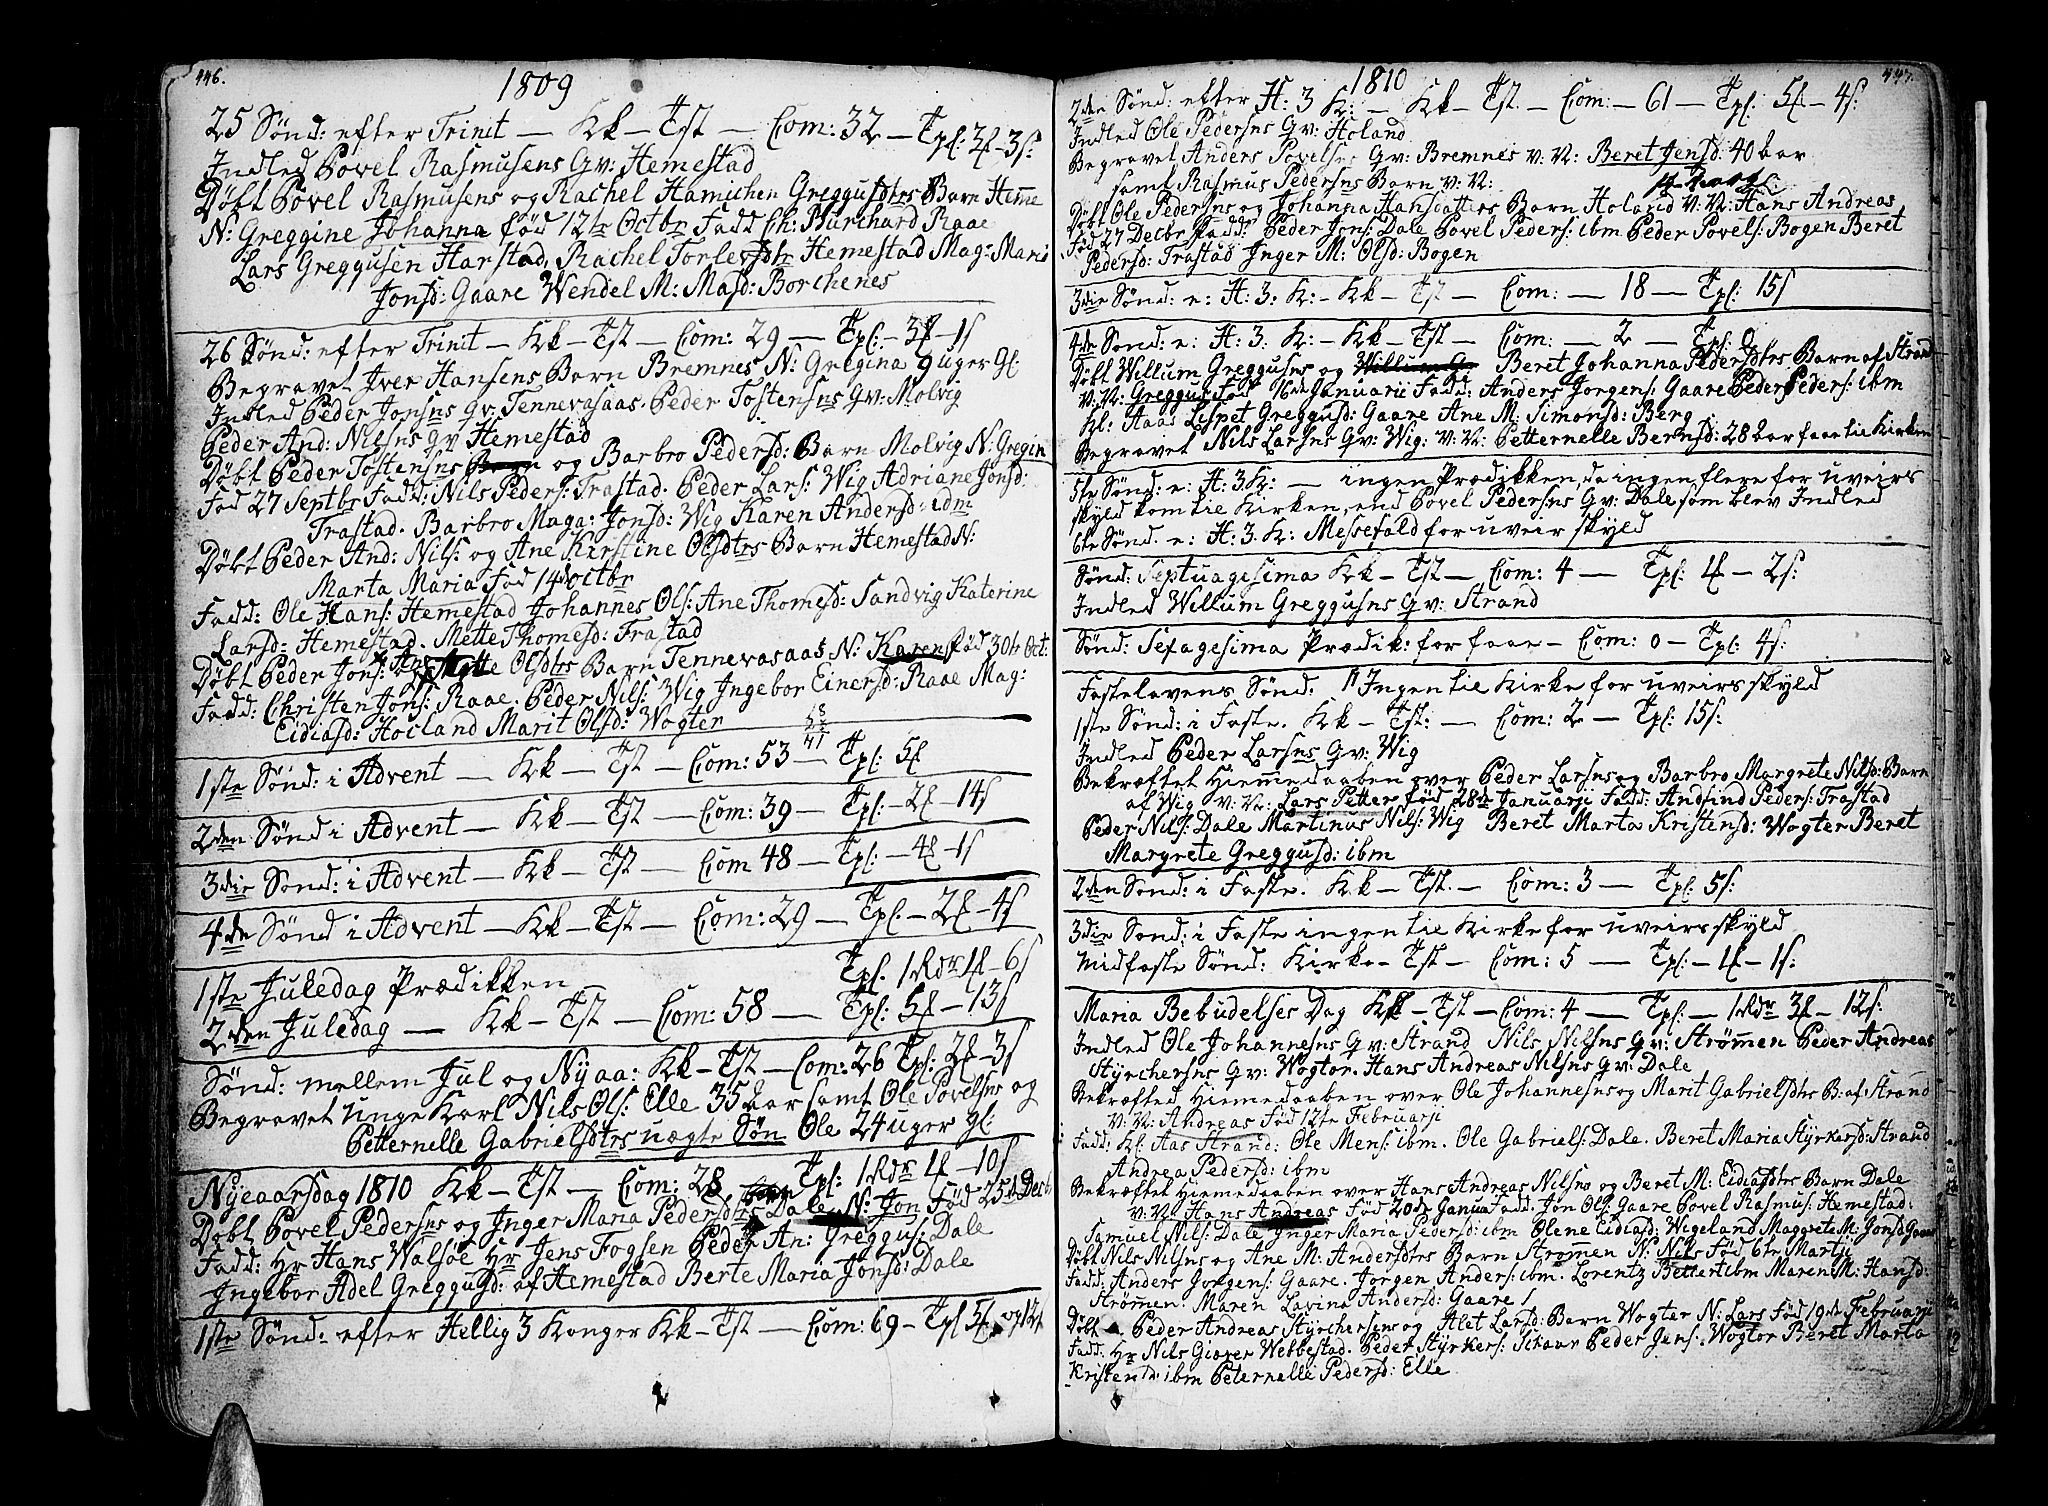 446.
1809
25 Sønd: efter Trinit — Kk — Tst — Com: 32 — Tpl: 2f — 3s:
Indled Povel Rasmusens Qv: Hemestad
Døbt Povel Rasmusens og Rachel Hamichen Greggusdtrs Barn Heme
N: Greggine Johanna fød 12te Octbr Fadd Ch: Burchard Raae
Lars Greggusen Harstad, Rachel Torlevsdtr Hemestad Mag: Maria
Jonsd: Gaare Wendel M: Masd: Borchenes
26 Sønd: efter Trinit — Kk — Tst — Com: 29 — Tpl: — 3f — 1s
Begravet Iver Hansens Barn Bremnes N: Gregina 9 uger Gl:
Indled Peder Jonsns Qv: Tennevasaas. Peder Tostensns Qv: Molvig
Peder And: Nilsns Qv Hemestad
Døbt Peder Tostensns og Barbro Pedersd: Barn Molvig N: Gregin
Fød 27 Septbr Fadd: Nils Peders: Trastad. Peder Lars: Wig Adriane Jonsd:
Trastad. Barbro Maga: Jonsd: Wig Karen Andersd: idm
Døbt Peder And: Nils: og Ane Kirstine Olsdtrs Barn Hemestad N:
Marta Maria Fød 14de Octbr
Fadd: Ole Hans: Hemestad Johannes Ols: Ane Thomesd: Sandvig Katerine
Larsd: Hemestad. Mette Thomesd: Trastad
Døbt Peder Jons: og Mette Olsdtrs Barn Tennevasaas N: Karen Fød 30te Oct:
Fadd: Christen Jons: Raae. Peder Nils: Wig Ingebor Einersd: Raae Mag:
Eidiasd: Hoiland Marit Olsd: Wogter
1ste Sønd: i Advent — Kk — Tst — Com: 53 — Tpl: 5f
2den Sønd i Advent — Kk — Tst — Com: 39 — Tpl: — 2f — 14s
3die Sønd: i Advent — Kk — Tst — Com 48 — Tpl: — 4f — 1s
4de Sønd i Advent — Kk — Tst — Com: 29 — Tpl. — 2f — 4s
1ste Juledag Prædikken Tpl. 1 Rdr 1f — 6s
2den Juledag — Kk — Tst — Com: 58 — Tpl: 5f — 13s
Sønd: mellem Jul og Nyaa: Kk — Tst — Com: 26 Tpl: 2f — 3s
Begravet unge Karl Nils Ols: Elle 35 aar samt Ole Povelsns og
Petternelle Gabrielsdtrs uægte Søn Ole 24 uger gl:
Nyeaarsdag 1810 Kk — Tst — Com: 28 Tpl: 1 Rdr 1f — 10s
Døbt Povel Pedersns og Inger Maria Pedersdtrs Dale N: Jon Fød 25de Decb
Fadd: Hr Hans Walsøe Hr Jens Fogsen Peder An: Greggus: Dale
Ingebor Adel Greggusd: af Hemestad Berte Maria Jonsd: Dale
1ste Sønd: efter Hellig 3 Konger Kk — Tst — Com: 69 — Tpl 5f og 14s
447.
1810
2den Sønd: efter H: 3 K: — Kk — Tst — Com: — 61 — Tpl: 5f — 4s:
Indled Ole Pedersns Qv: Holand
Begravet Anders Povelsns Qv: Bremnes v: N: Beret Jensd: 40 aar
samt Rasmus Pedersns Barn v: N:
Døbt Ole Pedersns og Johanna Hansdatters Barn Holand v: N: Hans Andreas
Fød 27 Decbr Fadd: Peder Jons: Dale Povel Peders: ibm Peder Povels: Bogen Beret
Pedersd: Trastad Inger M: Olsd: Bogen
3die Sønd: e: H: 3: K: — Kk — Tst — Com: — 18 — Tpl: 15s
4de Sønd: e: H: 3. K: — Kk — Tst — Com: — 2 — Tpl: 0
Døbt Willum Greggusns og Beret Johanna Pedersdtrs Barn af Strand
v: N: Greggus Fød 16de Januarii Fadd: Anders Jorgens: Gaare Peder Peders: ibm
Kl: Aas Lispet Greggusd: Gaare Ane M: Simonsd: Berg
Begravet Nils Larsns Qv: Wig: v: N: Petternelle Bernsd: 28 aar faae til Kirken
5te Sønd: e: H: 3. K: — ingen Prædikken, da ingen flere for uveirs
skyld kom til Kirken, end Povel Pedersns Qv: Dale, som blev Indled
6te Sønd. e: H: 3. K: Messefald for uveir skyld
Sønd: Septuagesima Kk — Tst — Com: 4 — Tpl: 1f — 2s:
Indled Willum Greggusns Qv: Strand
Sønd: Sexagesima Prædik: for faae — Com: 0 — Tpl: 4s:
Fastelavens Sønd: Ingen til Kirke for uveirs skyld
1ste Sønd: i Faste. Kk — Tst: — Com: 2 — Tpl: 15s:
Indled Peder Larsns Qv: Wig
Bekræftet Hiemmedaaben over Peder Larsns og Barbro Margrete Nilsd: Barn
af Wig v: N: Lars Petter fød 28de Januarji Fadd: Andfind Peders: Trastad
Peder Nils: Dale Martinus Nils: Wig Beret Marta Kristensd: Wogter Beret
Margrete Greggusd: ibm
2den Sønd: i Faste. Kk — Tst. — Com: 3 — Tpl: 5s:
3die Sønd: i Faste ingen til Kirke for uveirs skyld
Midfaste Sønd: Kirke — Tst — Com: 5 — Tpl: — 1f — 1s:
Maria Bebudelses Dag Kk — Tst — Com: 4 — Tpl: — 1 Rdr 3f — 12s:
Indled Ole Johannesns Qv: Strand Nils Nilsns Qv: Strømmen Peder Andreas
Styrchersns Qv: Wogter. Hans Andreas Nilsns Qv: Dale
Bekræfted Hiemedaaben over Ole Johannesns og Marit Gabrielsdtrs B: af Strand
v: N: Andreas Fød 12te Februarji
Fadd: Kl: Aas Strand: Ole Mens: ibm. Ole Gabriels: Dale. Beret Maria Styrkersd: Strand
Andrea Pedersd: ibm
Bekræftet Hiemedaaben over Hans Andreas Nilsns og Beret M: Eidiasdtrs Barn Dale
v: N: Hans Andreas Fød 20de Janua Fadd. Jon Ols: Gaare Povel Rasmus: Hemestad:
Samuel Nils: Dale Inger Maria Pedersd: ibm Olene Eidiasd: Wigeland Maggrete M: Jonsd Gaare
Døbt Nils Nilsns og Ane M: Andersdtrs Barn Strømen N: Nils Fød 6te Martji
Fadd: Anders Jorgens: Gaare. Jorgen Anders: ibm. Lorentz Bettert ibm Maren M: Hansd:
Strømmen: Maren Lavina Andersd: Gaare
Døbt Peder Andreas Styrchersns og Alet Larsd: Barn Wogter N: Lars Fød 19de Februarji
Fadd: Hr Nils Giæver Webbestad. Peder Styrkers: Skaar Peder Jens: Wogter Beret Marta
Kristend: ibm Peternelle Pedersd: Elle